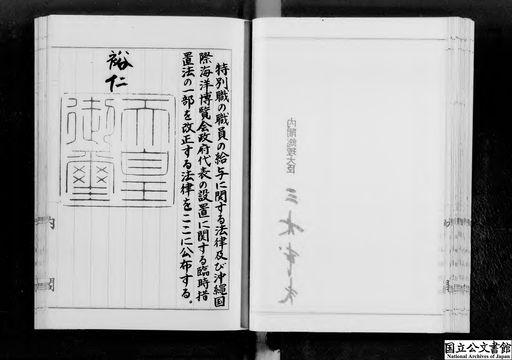 特別職の職員の給与に関する法律及び沖縄国
際海洋博覧会政府代表の設置に関する臨時措
置法の一部を改正する法律をここに公布する。
裕仁
天皇
御璽
内閣総理大臣
三木武夫
内閣
国立公文書館
National Archives of Japan